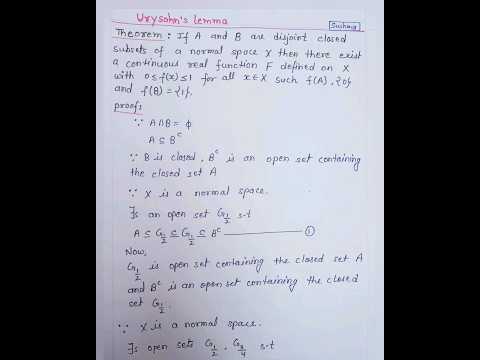 Urysohn's lemma
Sushma
Theorem : If A and B are disjoint closed
subsets of a normal space X then there exist
a continuous real function F defined on X
with 0≤f(x)≤1 for all x∈X such f(A)={0}
and f(B)={1}.
proofs
∵ A∩B=ϕ
A⊆Bᶜ
∵ B is closed, Bᶜ is an open set containing
the closed set A
∵ X is a normal space.
∃s an open set G_1/2 s.t
A⊆G_1/2⊆G_1/2⊆Bᶜ ①
Now,
G_1/2 is open set containing the closed set A
and Bᶜ is an open set containing the closed
set G_1/2.
∵ X is a normal space.
∃s open sets G_1/2, G_3/4 s-t